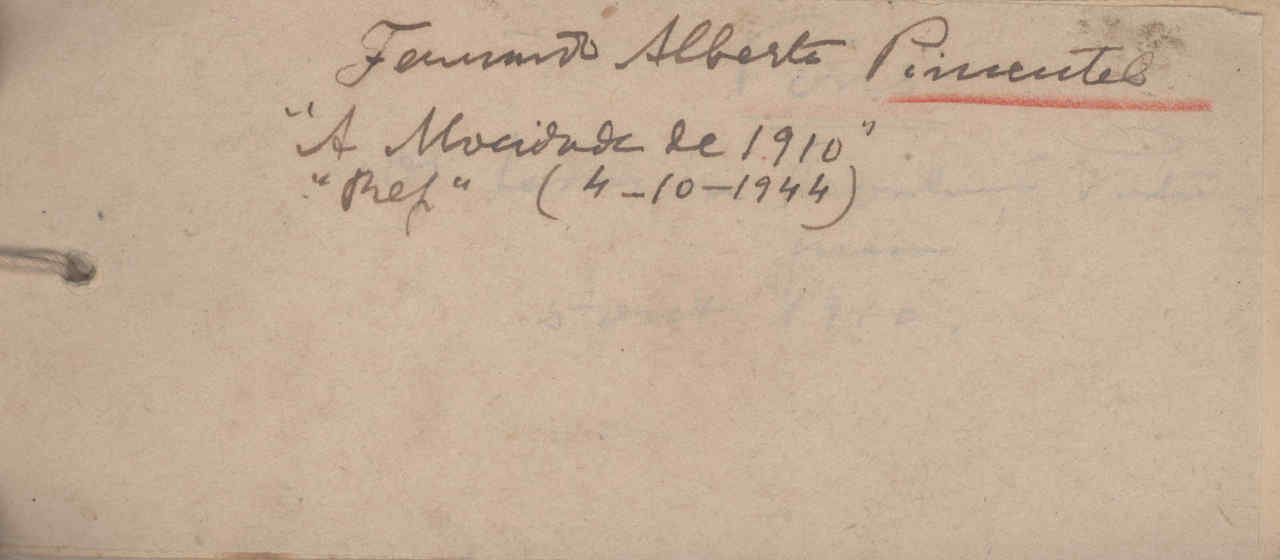 Fernando Alberto Pimentel
"A Mocidade de 1910"
"Rep" (4-10-1944)